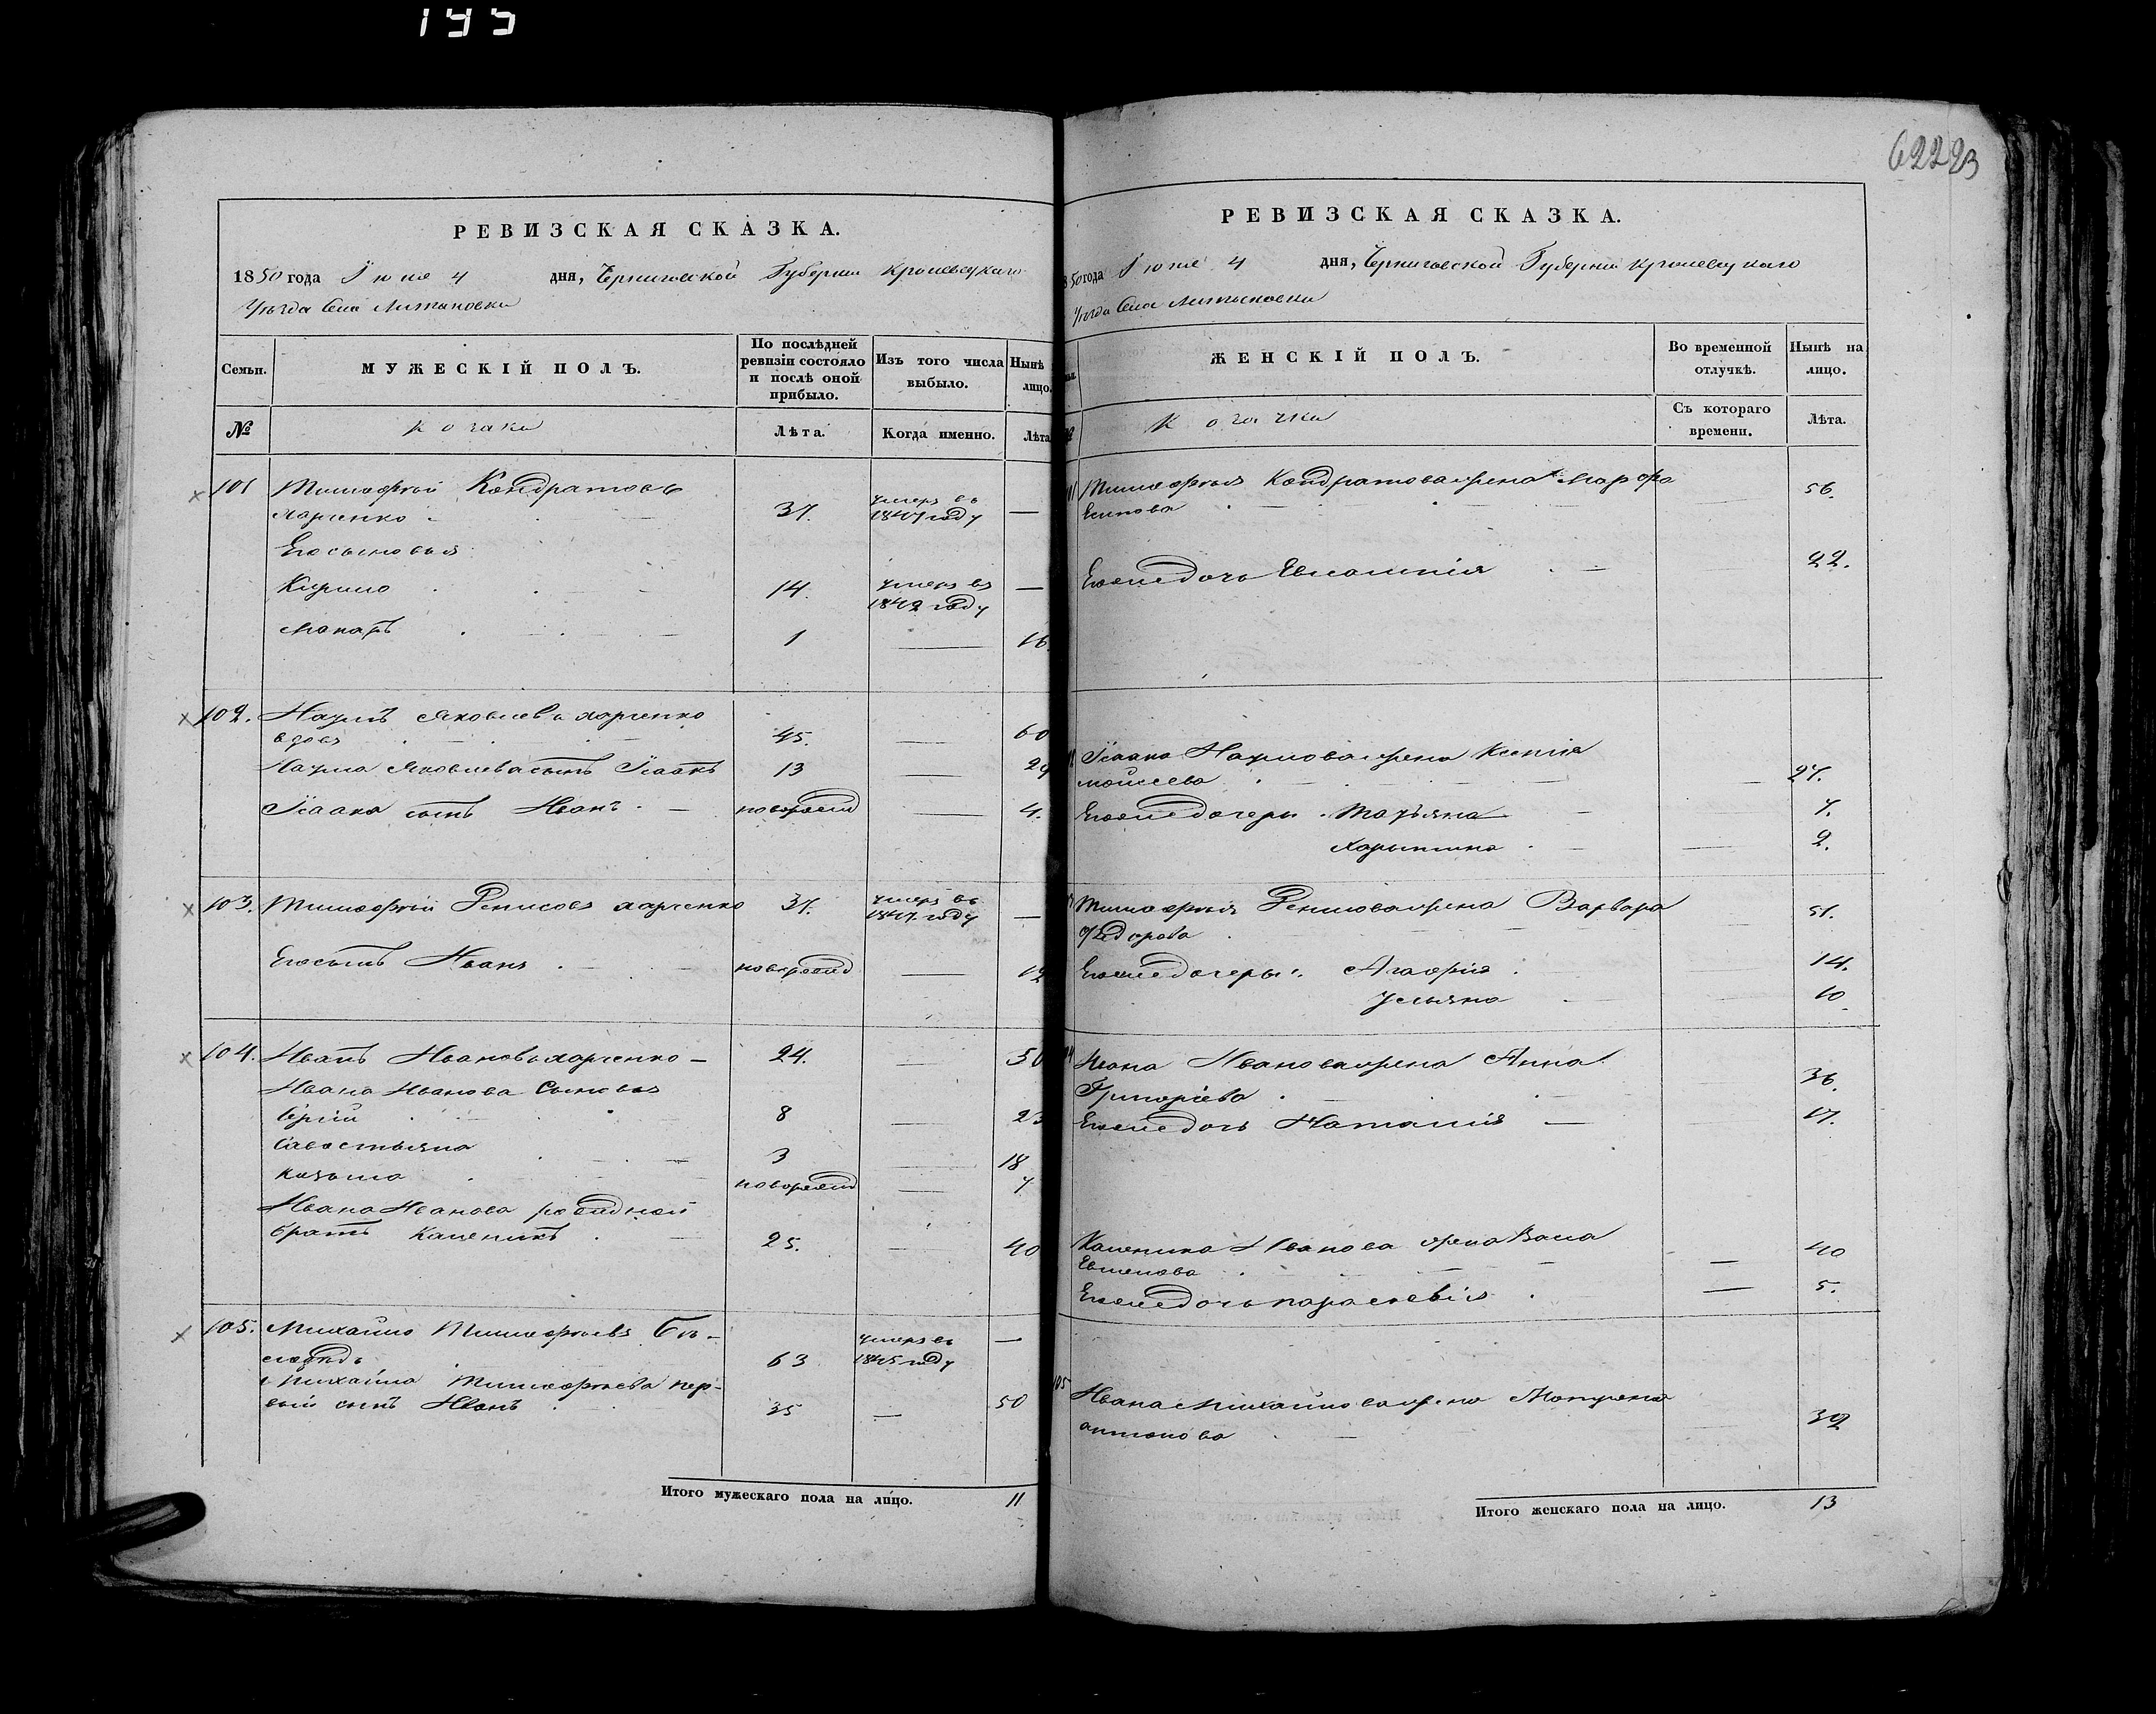 195
РЕВИЗСКАЯ СКАЗКА.
1850 года Іюня 4 дня, Черниговской Губерніи Кролевецкаго
уѣзда Села Литвиновки
Семьи. МУЖЕСКІЙ ПОЛЪ. По послѣдней ревизіи состояло и послѣ оной прибыло. Изъ того числа выбыло. Нынѣ лицо.
№ Козаки Лѣта. Когда именно. Лѣта
101 Тимофѣй Кондратовъ
Харченко 37. умеръ въ 1847 году —
Его сыновья
Кирило 14. умеръ въ 1842 году —
Макаръ 1 — 16.
102. Наумъ Яковлевъ Харченко
вдовъ 45. — 60
Наума Яковлева сынъ Ісаакъ 13 — 29
Ісаака сынъ Иванъ новорожд — 4.
103. Тимофѣй Денисовъ Харченко 37. умеръ въ 1847 году —
Его сынъ Иванъ новорожд — 12
104. Иванъ Ивановъ Харченко — 24. — 50
Ивана Иванова Сыновья
Сергій 8 — 23
Савостьянъ 3 — 18
Козьма новорожд — 7
Ивана Иванова родной
братъ Каленикъ 25. — 40
105. Михайло Тимофѣевъ
63 умеръ въ 1845 году —
Михайла Тимофѣева пер-
вый сынъ Иванъ 35 — 50
Итого мужескаго пола на лицо. 11
62223
РЕВИЗСКАЯ СКАЗКА.
50 года Іюня 4 дня, Черниговской Губерніи Кролевецкаго
уѣзда Села Литвиновки
ЖЕНСКІЙ ПОЛЪ. Во временной отлучкѣ. Нынѣ на лицо.
Козачки Съ котораго времени. Лѣта.
Тимофѣя Кондратова жена Марфа
Есипова 56.
Его же дочь Евдокія 22.
Ісаака Наумова жена Ксенія
Мойсеева — 27.
Его же дочери Татьяна 7.
Харытина — 2.
Тимофѣя Денисова жена Варвара
Ѳедорова 51.
Его же дочеры: Агафія 14.
Ульяна 10
Ивана Иванова жена Анна
Григоріева 36.
Его же дочь Наталія — 17.
Каленика Иванова жена
— 40
Его же дочь Параскевія — 5.
105 Ивана Михайлова жена Мотрона
Антонова 39
Итого женскаго пола на лицо. 13